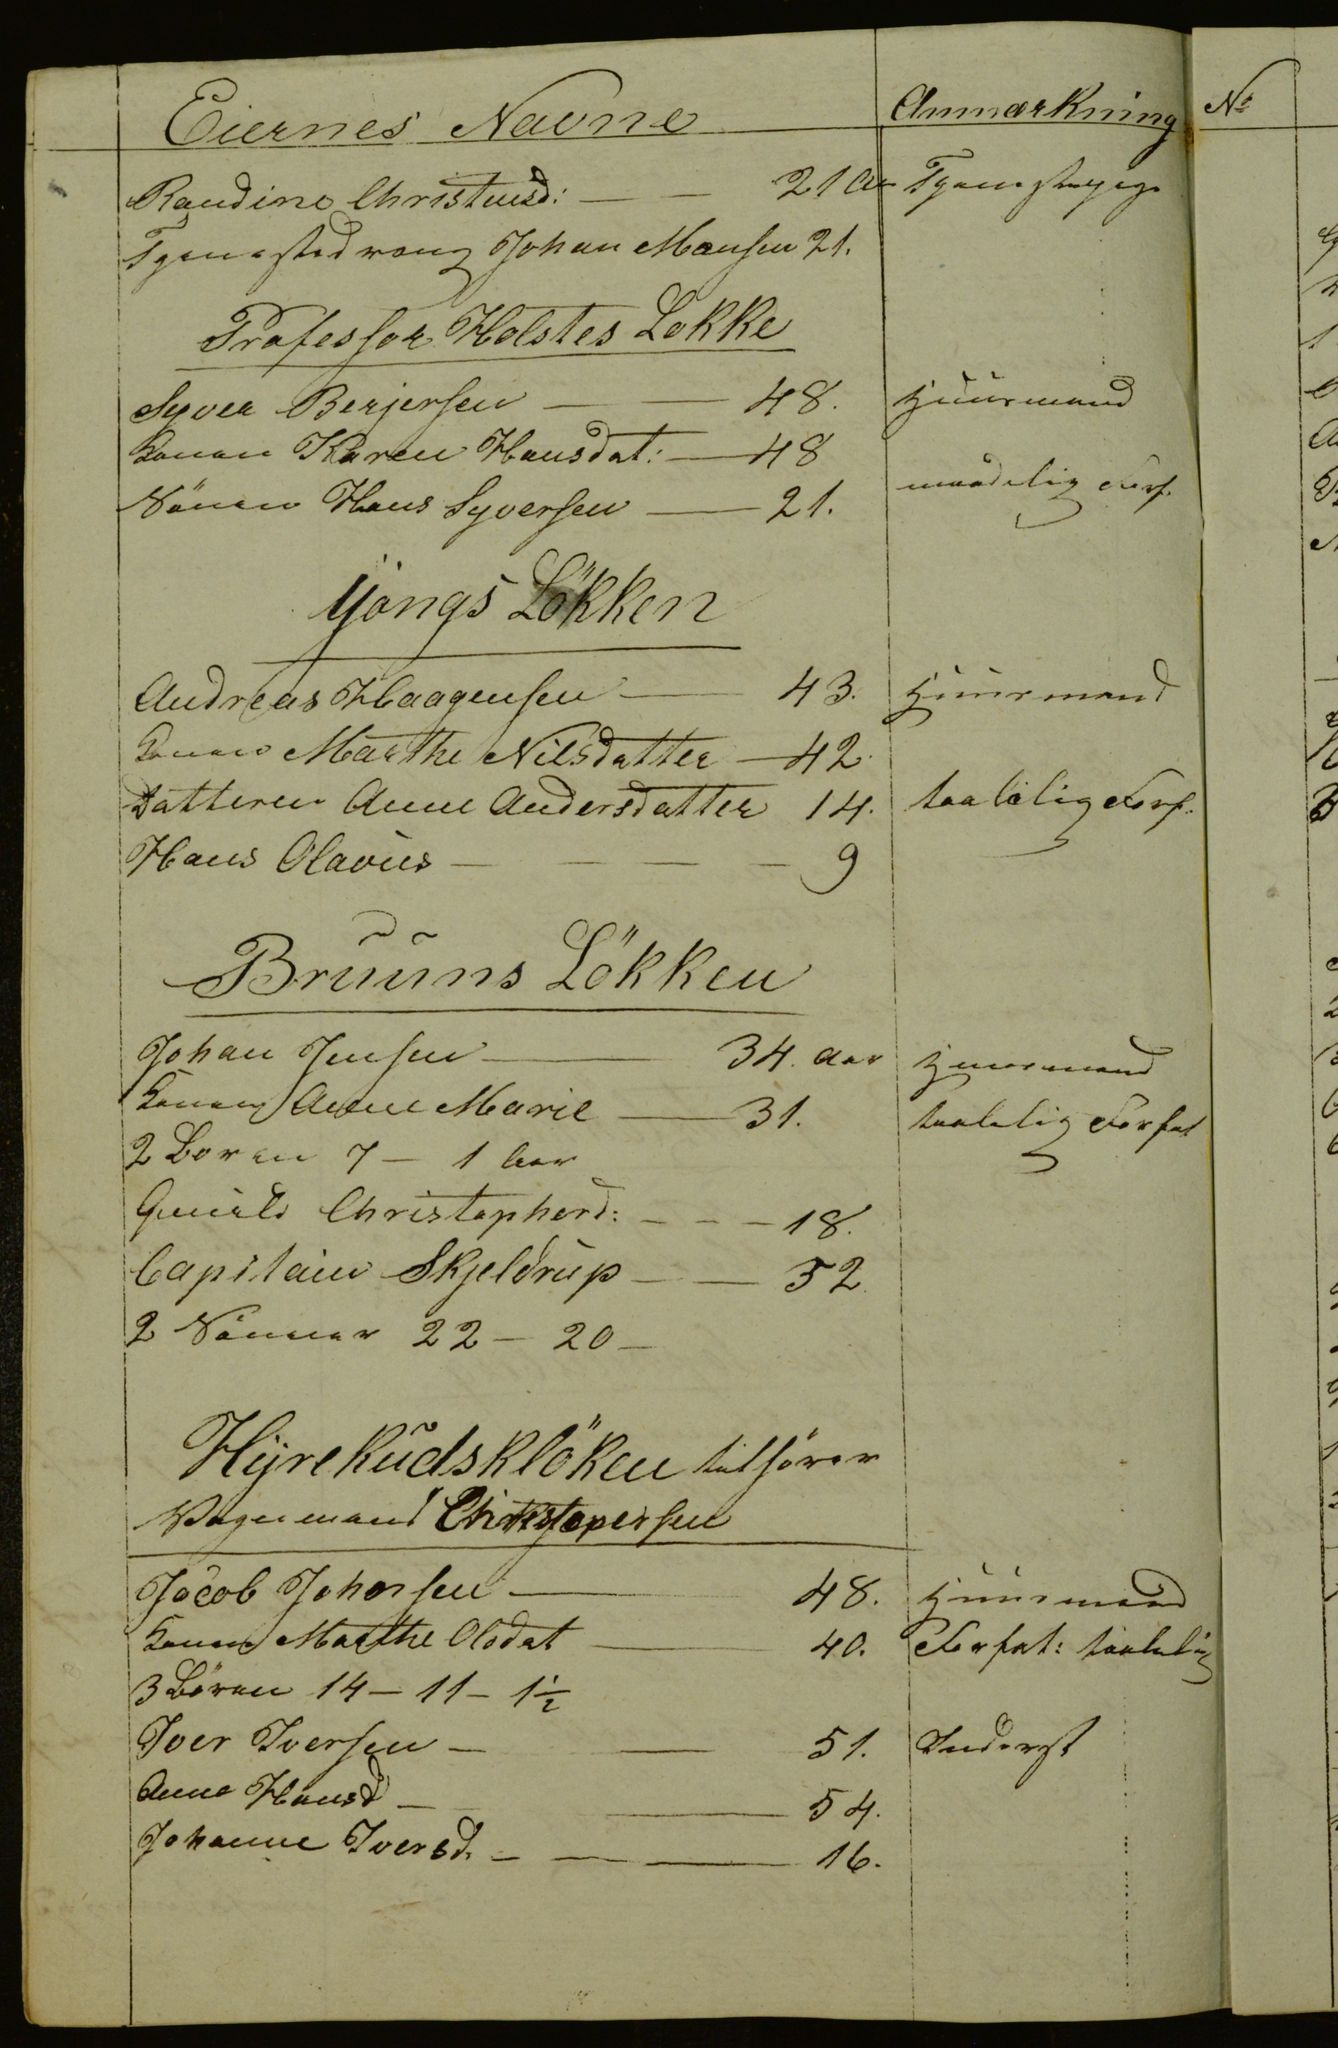 Eiernes Navne Anmærkning No
Randine Christensd: — — 21 Aar Tjenestepige
Tjenestedreng Johan Monsen 21.
Professor Holstes Lökke
Syver Berjersen — — 48. Huusmand
Konen Karen Hansdat: — 48
Sönnen Hans Syversen — 21. maadelig Forf.
Yöngs Lökken
Andreas Haagensen — 43. Huusmand
Konen Marthe Nilsdatter — 42.
Datteren Anne Andersdatter 14. taalelig Forf.
Hans Olavus — — — — 9
Bruuns Lökken
Johan Jensen — 34. Aar Huusmand
Konen Anne Marie — 31. taalelig Forfat
2 Börn 7 — 1 Aar
Gunild Christopherd: - - - 18.
Capitain Skjeldrup — — 52
2 Sönner 22 — 20 —
Hyrekudsklöken tilhörer
Vognmand Christopersen
Jacob Johansen — 48. Huusmand
Konen Marthe Olsdat — 40. Forfat: taalelig
3 Börn 14 — 11 — 1½
Iver Iversen — — 51. Inderst
Anne Hansd — — 54.
Johanne Iversd. — — 16.